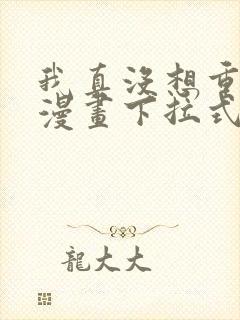 我真沒想重
漫畫下拉式
龍大大